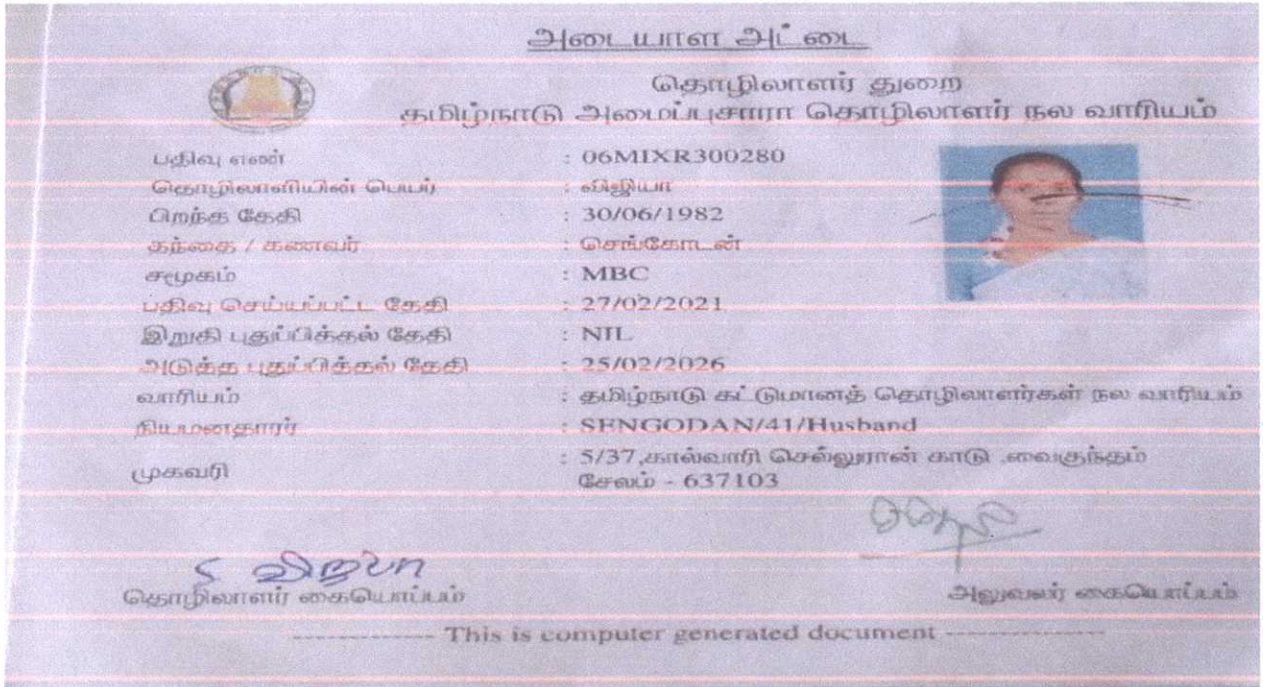 அடையாள அட்டை
தொழிலாளர் துறை
தமிழ்நாடு அமைப்புசாரா தொழிலாளர் நல வாரியம்
பதிவு எண் : 06MIXR300280
தொழிலாளியின் பெயர் : விஜியா
பிறந்த தேதி : 30/06/1982
தந்தை / கணவர் : செங்கோடன்
சமூகம் : MBC
பதிவு செய்யப்பட்ட தேதி : 27/02/2021
இறுதி புதுப்பித்தல் தேதி : NIL
அடுத்த புதுப்பித்தல் தேதி : 25/02/2026
வாரியம் : தமிழ்நாடு கட்டுமானத் தொழிலாளர்கள் நல வாரியம்
நியமனதாரர் : SENGODAN/41/Husband
முகவரி : 5/37,கால்வாரி செல்லுரான் காடு ,வைகுந்தம்
சேலம் - 637103
தொழிலாளர் கையொப்பம்
அலுவலர் கையொப்பம்
------------- This is computer generated document ---------------